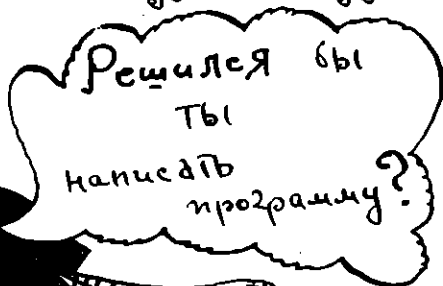 Решился бы
ты
написать
программу?